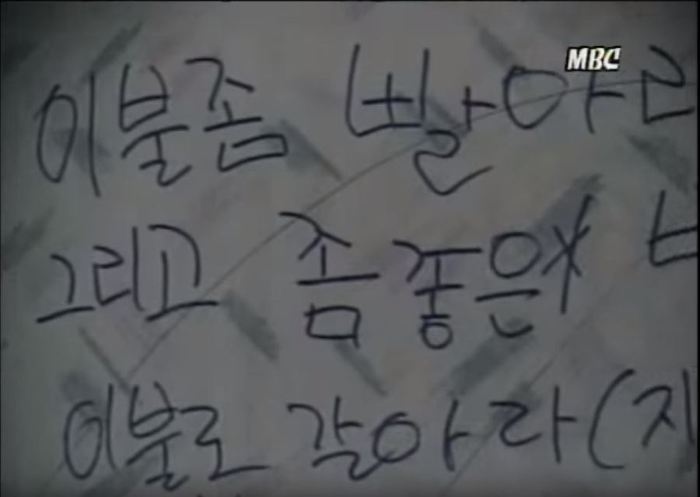 MBC
이불좀 빨아라
그리고 좀 좋은
이불로 갈아라 (지